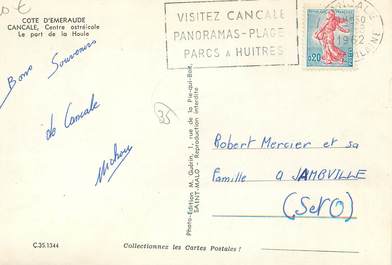 COTE D'EMERAUDE
CANCALE, Centre ostréicole
Le port de la Houle
VISITEZ CANCALE
PANORAMAS-PLAGE
PARCS A HUITRES
CANCALE
1962
0,20
Bons Souvenirs
de Cancale
35
Photo-Edition M. Guérin, 1, rue de la Pie-qui-Boit,
SAINT-MALO - Reproduction interdite
Robert Mercier et sa
Famille a JAMBVILLE
(SetO)
C.35.1344
Collectionnez les Cartes Postales !